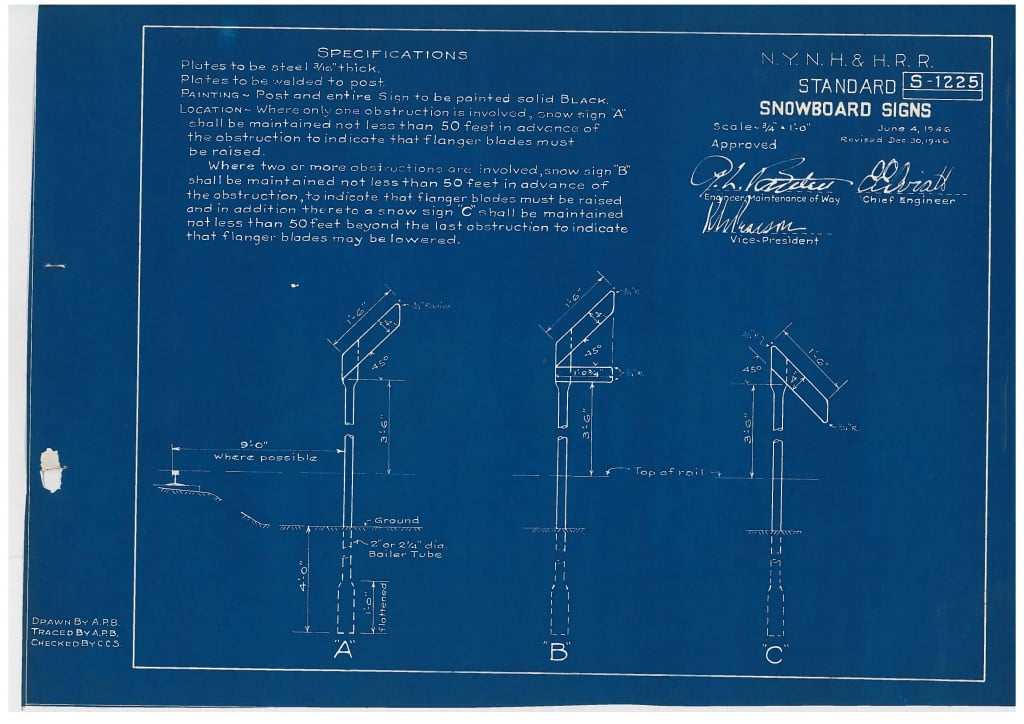 SPECIFICATIONS
Plates to be steel 3/16" thick.
Plates to be welded to post.
PAINTING~ Post and entire Sign to be painted solid BLACK.
LOCATION~ Where only one obstruction is involved, snow sign "A"
shall be maintained not less than 50 feet in advance of
the obstruction to indicate that flanger blades must
be raised.
Where two or more obstructions are involved, snow sign "B"
shall be maintained not less than 50 feet in advance of
the obstruction, to indicate that flanger blades must be raised
and in addition thereto a snow sign "C" shall be maintained
not less than 50 feet beyond the last obstruction to indicate
that flanger blades may be lowered.
N.Y. N. H. & H. R. R.
STANDARD S-1225
SNOWBOARD SIGNS
Scale~ 3/4" = 1'-0"
June 4, 1946
Revised Dec. 30, 1946
Approved
Engineer, Maintenance of Way
Chief Engineer
Vice-President
1'-6"
3/4" Radius
4"
45°
3'-6"
9'-0"
Where possible
Ground
2" or 2 1/4" dia.
Boiler Tube
4'-0"
1'-0"
flattened
"A"
1'-6"
3/4" R.
4"
45°
1'-0 3/4"
3/4" R.
3'-6"
Top of rail
"B"
3/4" R.
1'-6"
45°
4"
3/4" R.
3'-6"
"C"
DRAWN BY A.P.B.
TRACED BY A.P.B.
CHECKED BY C.C.S.